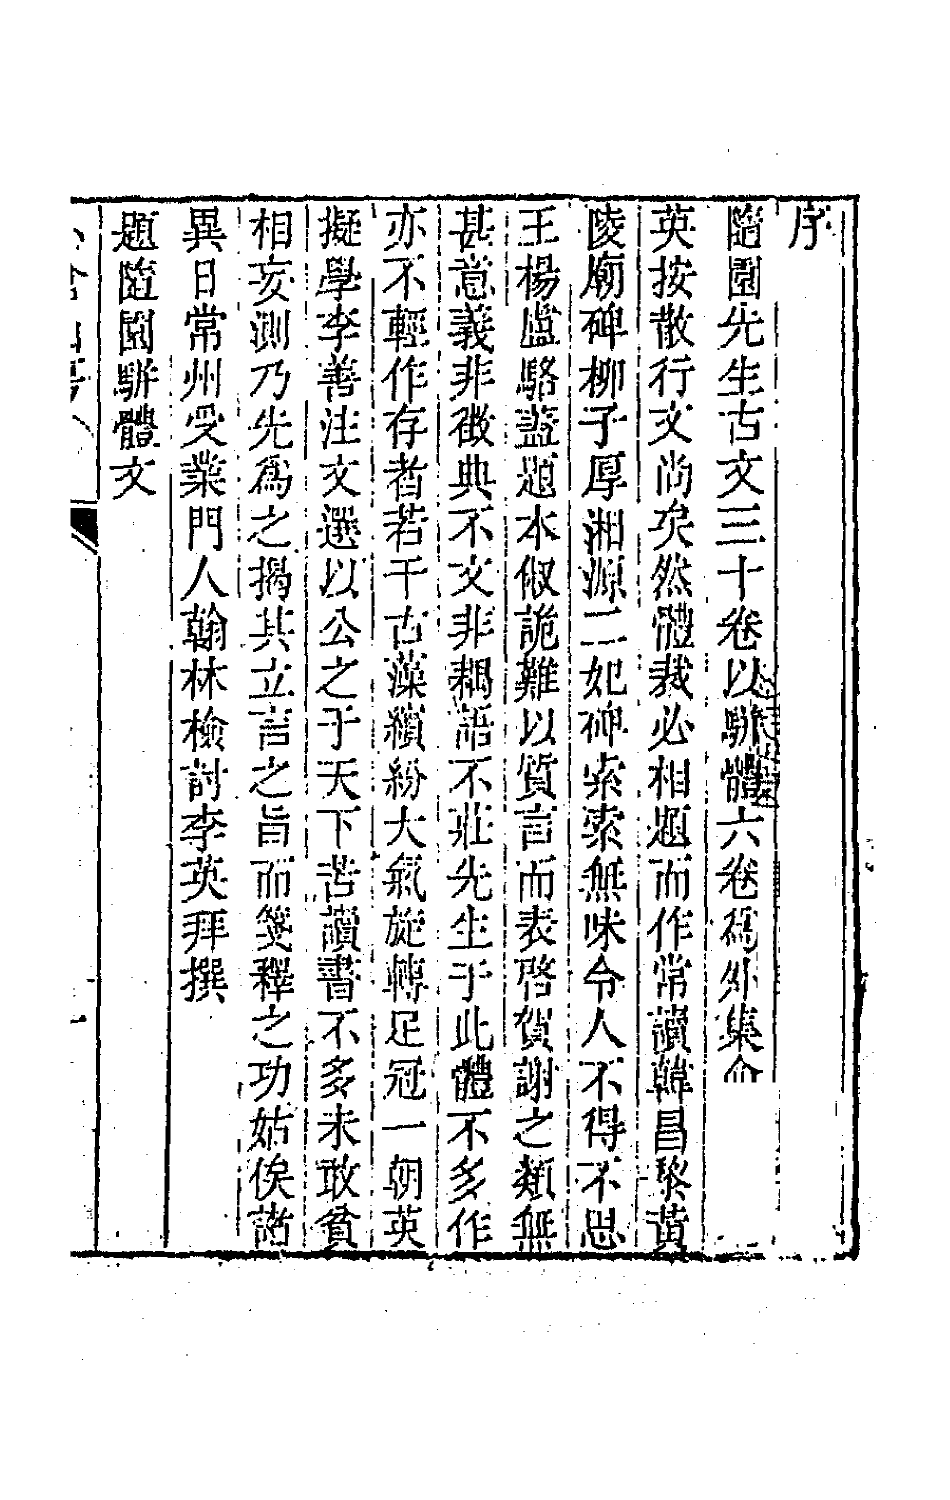 序
隨園先生古文三十卷以駢體六卷爲外集命
英按散行文尚矣然體裁必相題而作常讀韓昌黎黃
陵廟碑柳子厚湘源二妃碑索索無味令人不得不思
王楊盧駱葢題本俶詭難以質言而表啓賀謝之類無
甚意義非徵典不文非耦語不莊先生于此體不多作
亦不輕作存者若干古藻繽紛大氣旋轉足冠一朝英
擬學李善注文選以公之于天下苦讀書不多未敢貧
相妄測乃先爲之揭其立言之旨而箋釋之功姑俟諸
異日常州受業門人翰林檢討李英拜撰
題隨園駢體文